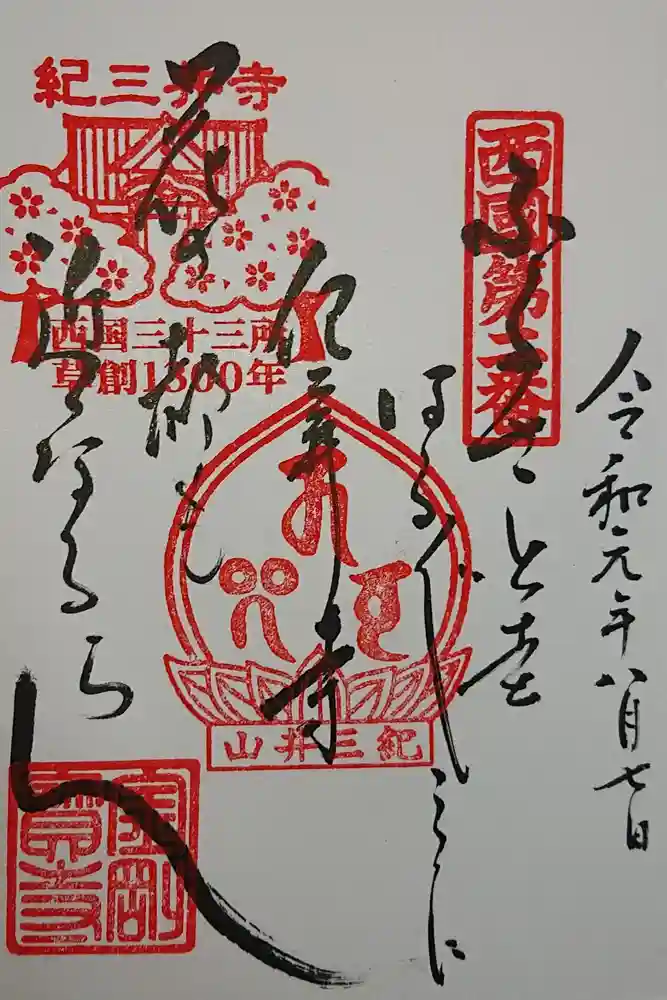 令和元年八月七日
西国第二番
ふるさとを
はるばるここに
紀三井寺
花の都も
近くなるらん
紀三井寺
西国三十三所
草創1300年
紀三井山
金剛寶寺